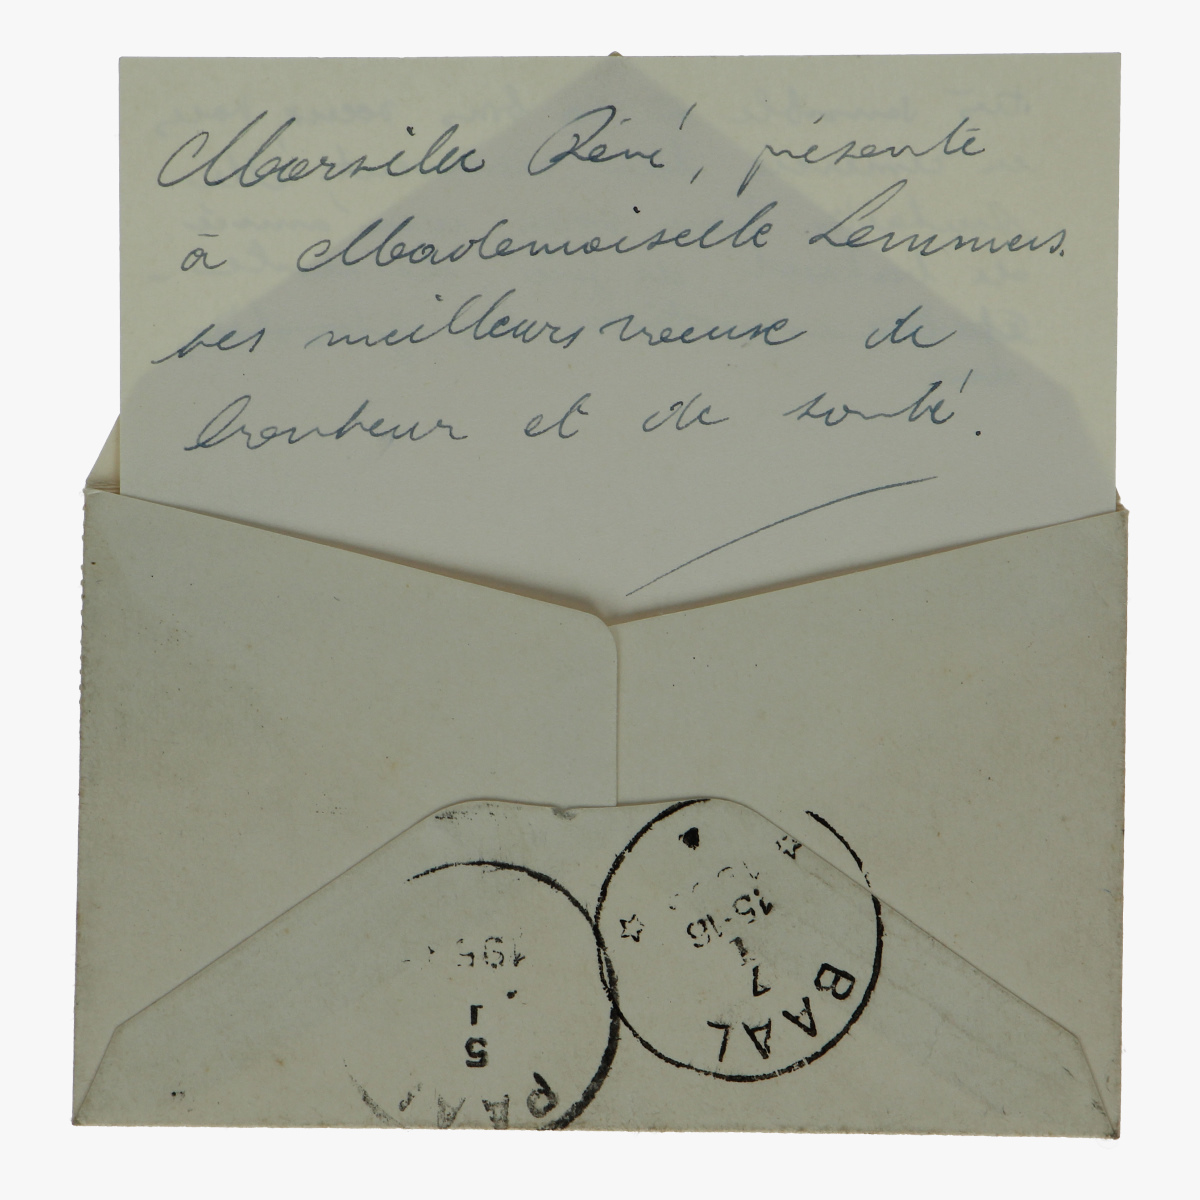 Marsilee Réné, présente
à Mademoiselle Lemmens.
ses meilleurs voeux de
bonheur et de santé.
BAAL
7
1
15-16
19
BAAL
5
1
195